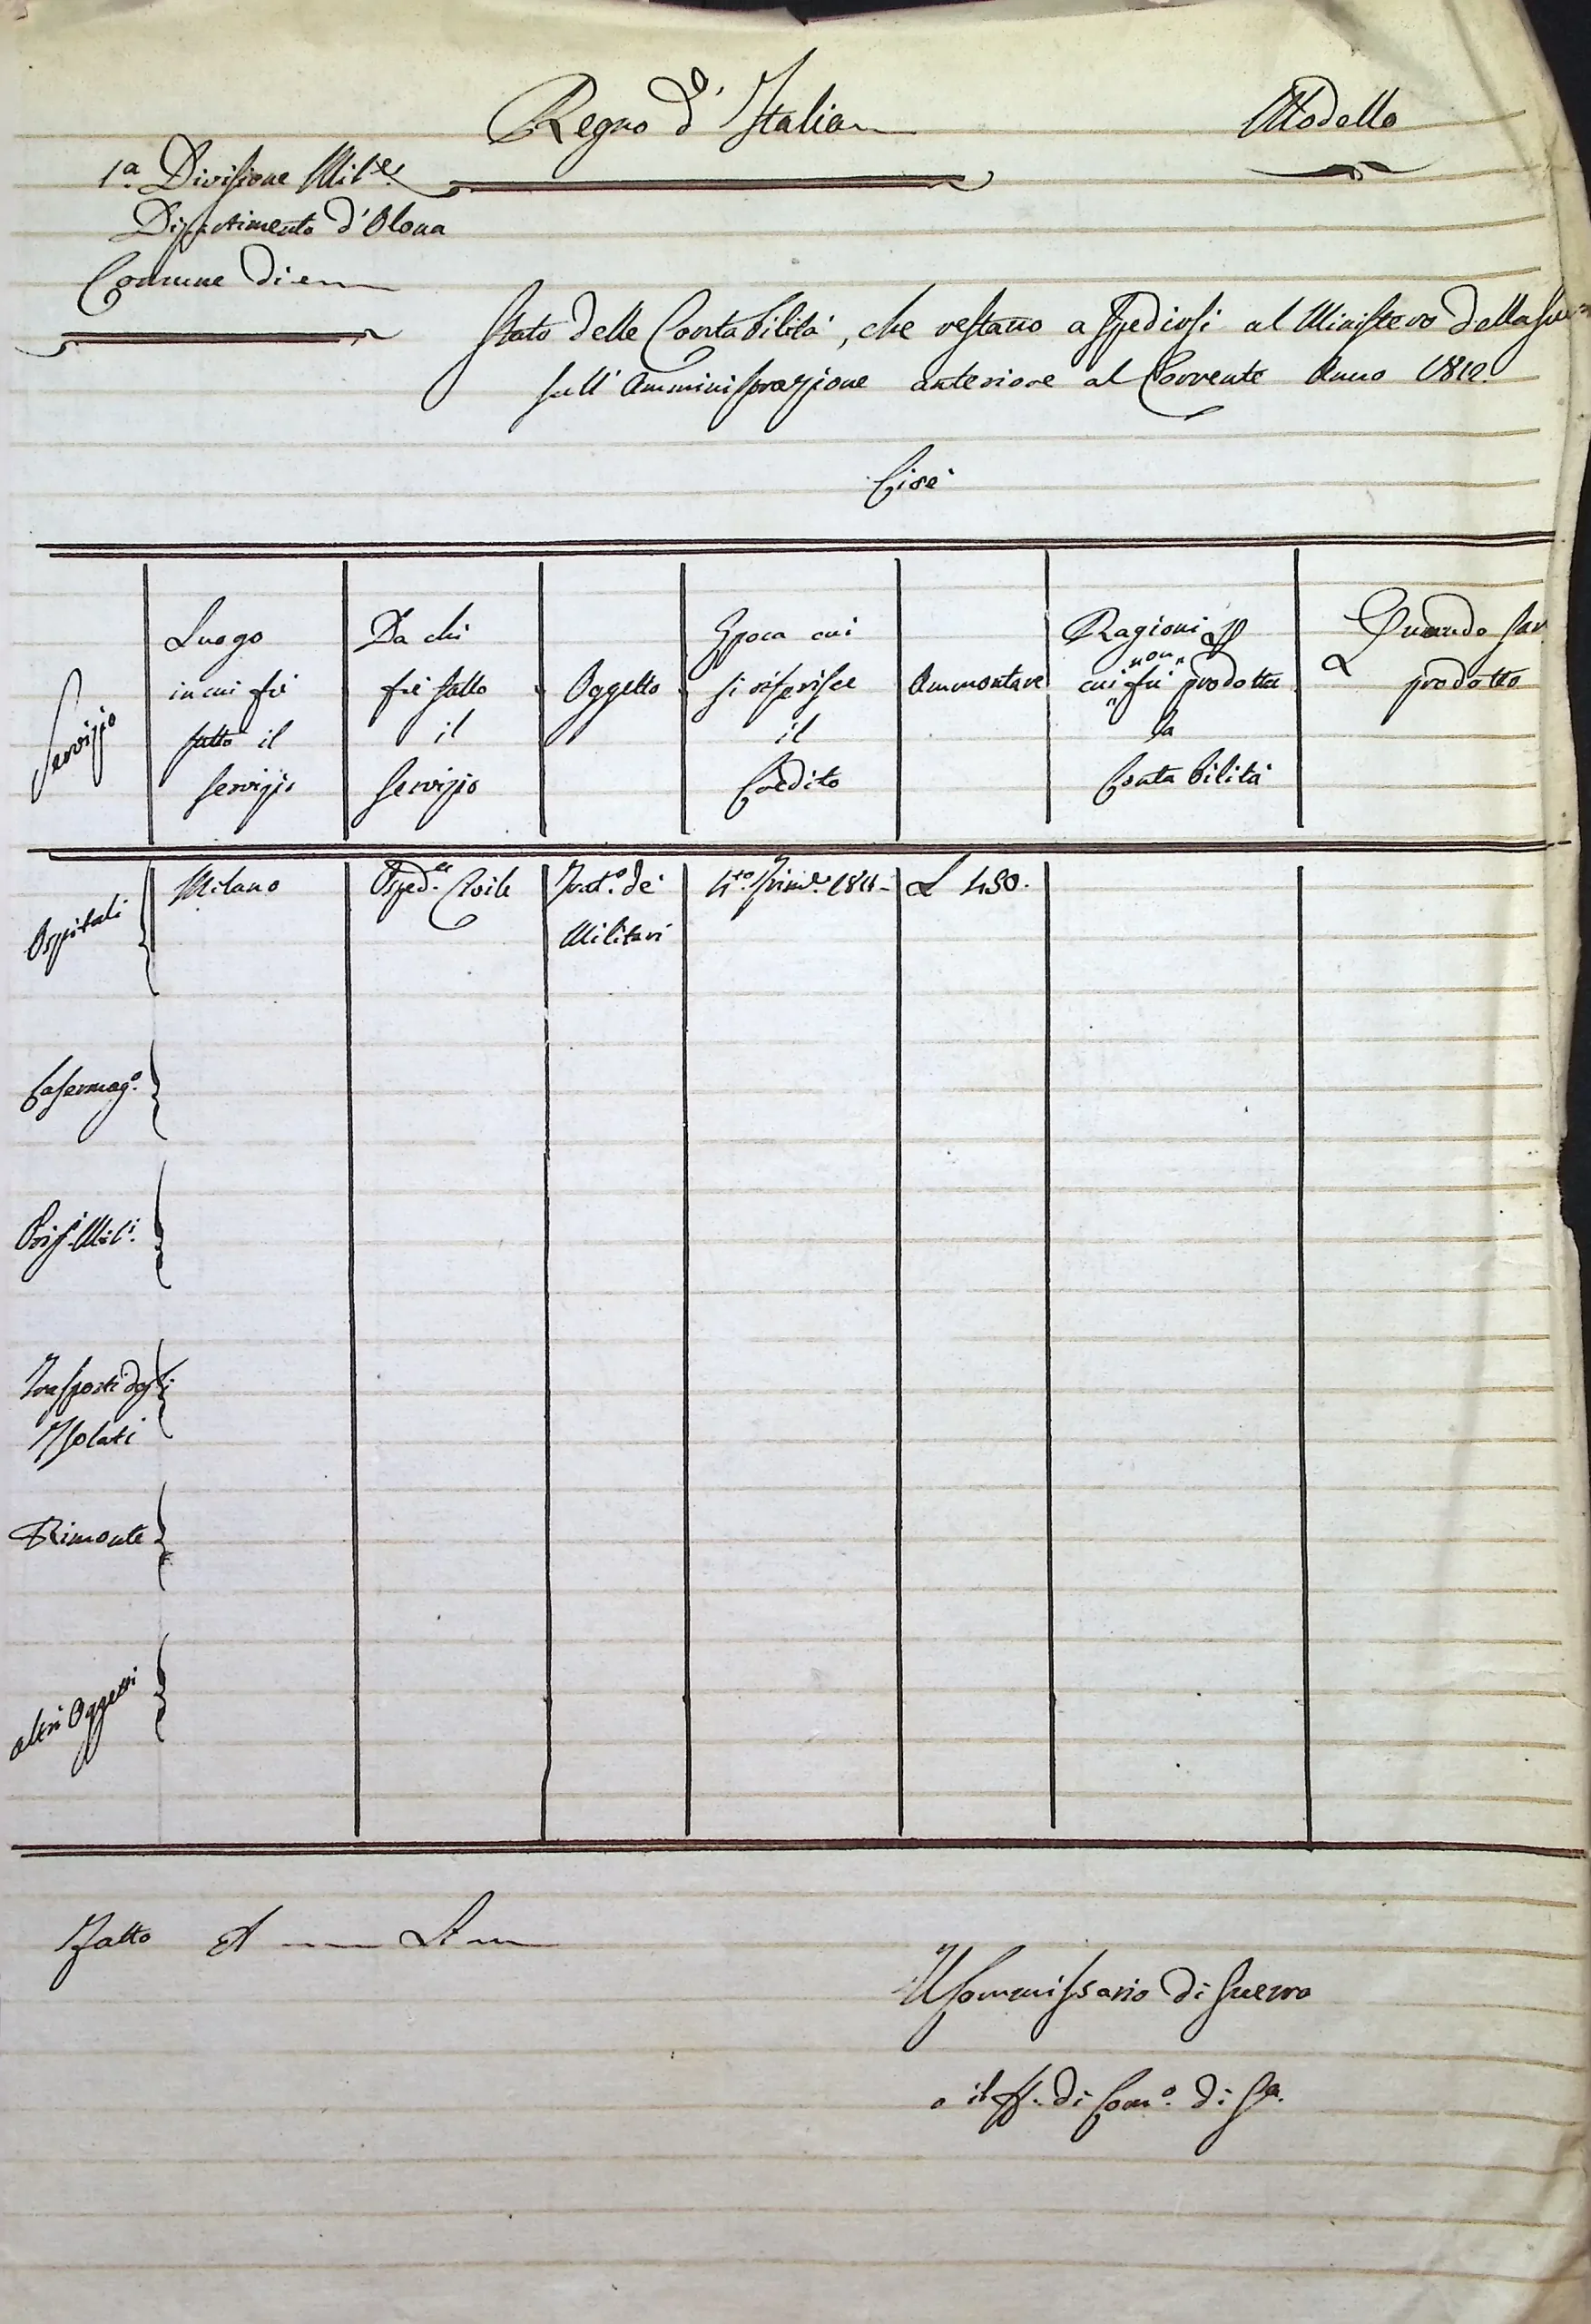 Regno d'Italia
Modello
1.a Divisione Mil.e
Dipartimento d'Olona
Comune di
Stato delle Contabilità, che restano a spedirsi al Ministero della
sull'Amministrazione anteriore al Corrente Anno 1812.
Cioè
Servizio
Luogo
in cui fù
fatto il
servizio
Da chi
fù fatto
il
servizio
Oggetto
Epoca cui
si riferisce
il
Credito
Ammontare
Ragioni p
non
cui fù prodotta
la
Contabilità
Quando sar
prodotto
Ospitali
Milano
Osped.le Civile
Tratt.o de'
Militari
4.to Trim.e 1811
L 450.
Casermag.o
Pris.i Mil.i
Trasporti degli
Isolati
Rimonte
Altri Oggetti
Fatto A Li
Il Commissario di Guerra
o il ff. di Com.o di G.a